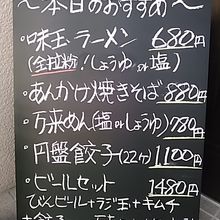 ～本日のおすすめ～
・味玉ラーメン 680円
(全粒粉！しょうゆor塩)
・あんかけ焼きそば 880円
・万来めん(塩orしょうゆ) 780円
・円盤餃子(22ヶ) 1100円
・ビールセット 1480円
びんビール+ラジ玉+キムチ